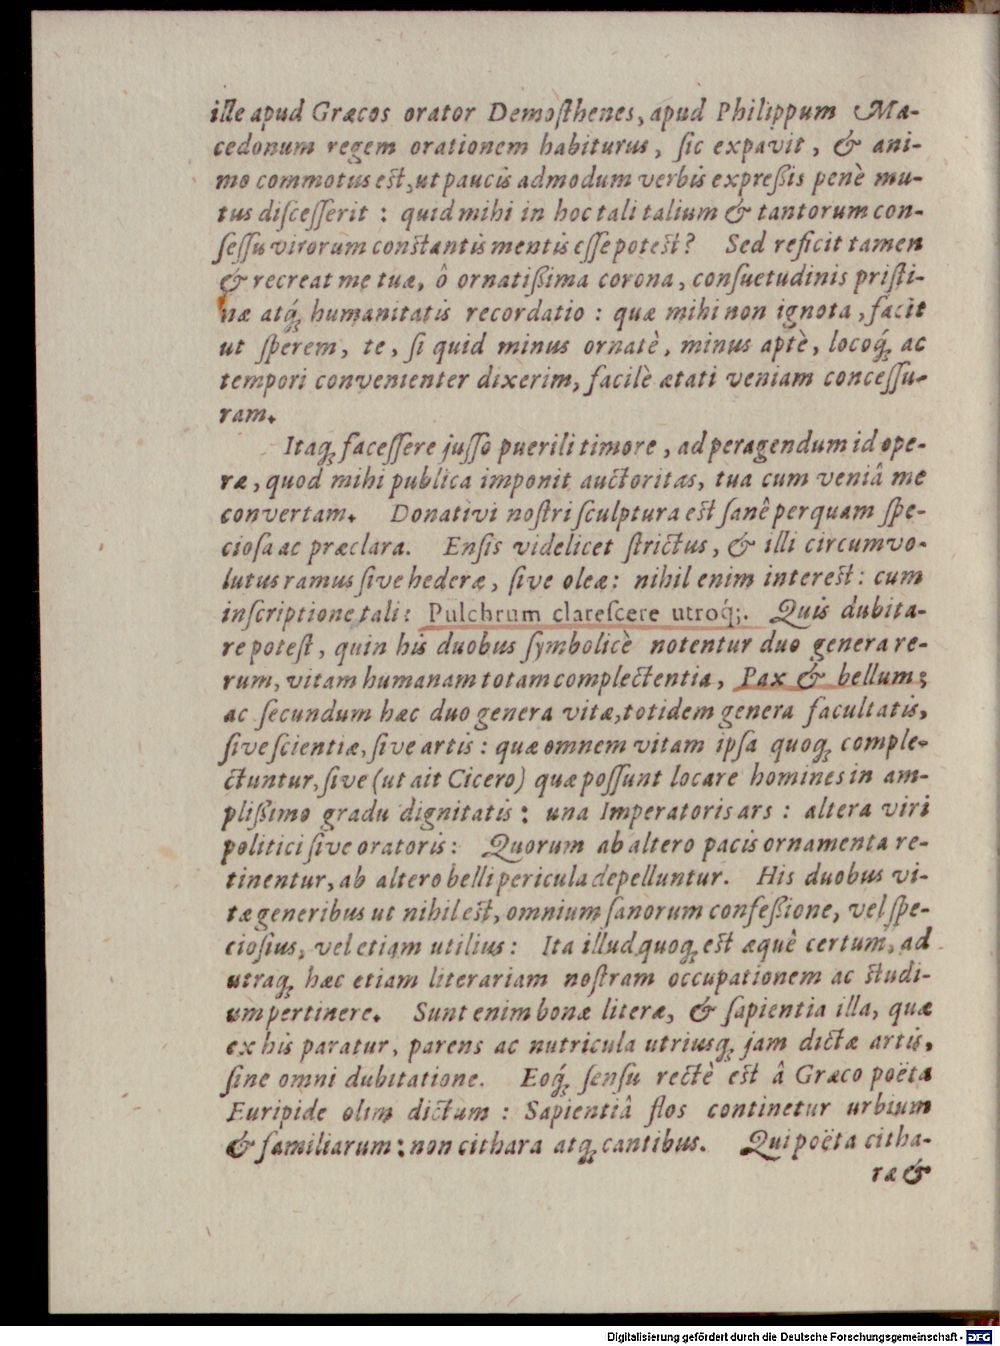 ille apud Græcos orator Demosthenes, apud Philippum Ma-
cedonum regem orationem habiturus, sic expavit, & ani-
mo commotus est, ut paucis admodum verbis expreßis penè mu-
tus discesserit : quid mihi in hoc tali talium & tantorum con-
sessu virorum constantis mentis esse potest? Sed reficit tamen
& recreat me tuæ, ô ornatißima corona, consuetudinis pristi-
næ atq́; humanitatis recordatio : quæ mihi non ignota, facit
ut sperem, te, si quid minus ornatè, minus aptè, locoq́; ac
tempori convenienter dixerim, facilè ætati veniam concessu-
ram.
Itaq; facessere jusso puerili timore, ad peragendum id ope-
ræ, quod mihi publica imponit auctoritas, tua cum veniâ me
convertam. Donativi nostri sculptura est sanê perquam spe-
ciosa ac præclara. Ensis videlicet strictus, & illi circumvo-
lutus ramus sive hederæ, sive oleæ: nihil enim interest: cum
inscriptione tali: Pulchrum clarescere utroq́;. Quis dubita-
re potest, quin his duobus symbolicè notentur duo genera re-
rum, vitam humanam totam complectentia, Pax & bellum;
ac secundum hæc duo genera vitæ, totidem genera facultatis,
sive scientiæ, sive artis : quæ omnem vitam ipsa quoq; comple-
ctuntur, sive (ut ait Cicero) quæ possunt locare homines in am-
plißimo gradu dignitatis : una Imperatoris ars : altera viri
politici sive oratoris : Quorum ab altero pacis ornamenta re-
tinentur, ab altero belli pericula depelluntur. His duobus vi-
tæ generibus ut nihil est, omnium sanorum confeßione, vel spe-
ciosius, vel etiam utilius : Ita illud quoq; est æquè certum, ad
utraq; hæc etiam literariam nostram occupationem ac studi-
um pertinere. Sunt enim bonæ literæ, & sapientia illa, quæ
ex his paratur, parens ac nutricula utriusq; jam dictæ artis,
sine omni dubitatione. Eoq́; sensu rectè est â Græco poëta
Euripide olim dictum : Sapientiâ flos continetur urbium
& familiarum : non cithara atq; cantibus. Qui poëta citha-
ræ &
Digitalisierung gefördert durch die Deutsche Forschungsgemeinschaft - DFG